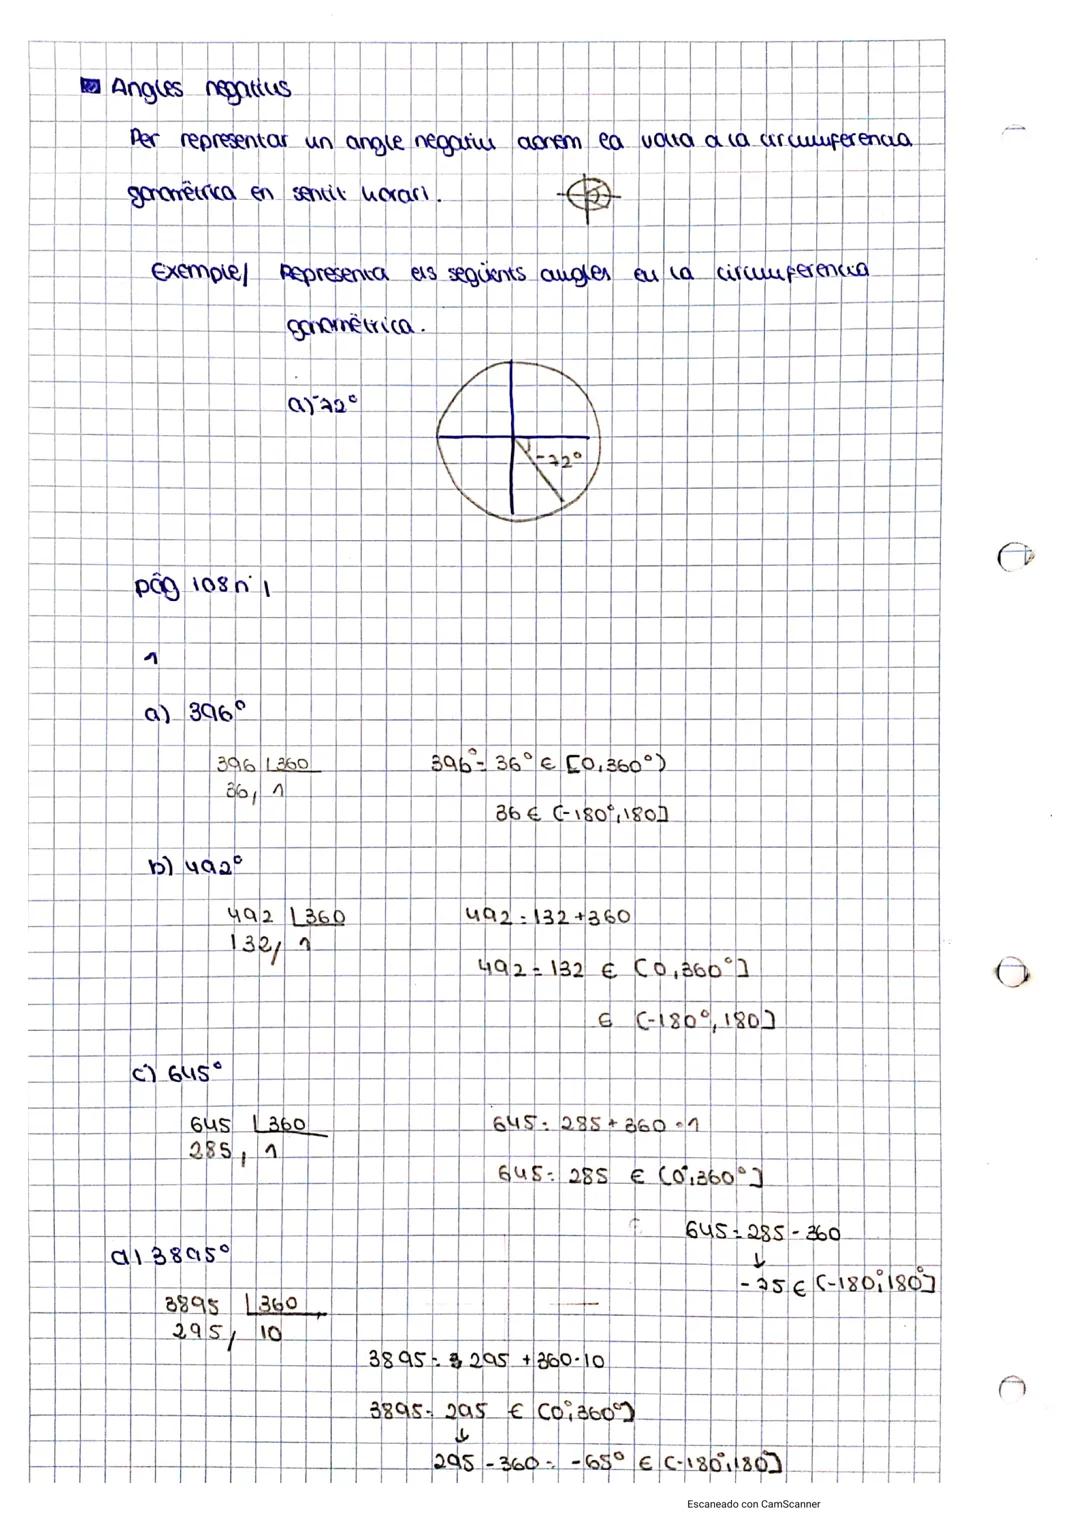 Angles negatius
Per representar un angle negatiu donem la volta a la circumferència
goniomètrica en sentit horari.
Exemple/ Representa els següents angles en la circumferència
goniomètrica.
a) -72°
-72°
pàg 108 nº 1
1
a) 396°
396 | 360
36, 1
396° = 36° ∈ [0, 360°)
36 ∈ (-180°, 180]
b) 492°
492 | 360
132, 1
492 = 132 + 360
492 = 132 ∈ (0, 360°]
∈ (-180°, 180]
c) 645°
645 | 360
285, 1
645 = 285 + 360 · 1
645 = 285 ∈ (0°, 360°]
645 = 285 - 360
↓
-75 ∈ (-180°, 180°]
d) 3895°
3895 | 360
295, 10
3895 = 295 + 360 · 10
3895 = 295 ∈ (0°, 360°)
↓
295 - 360 = -65° ∈ (-180°, 180]
Escaneado con CamScanner